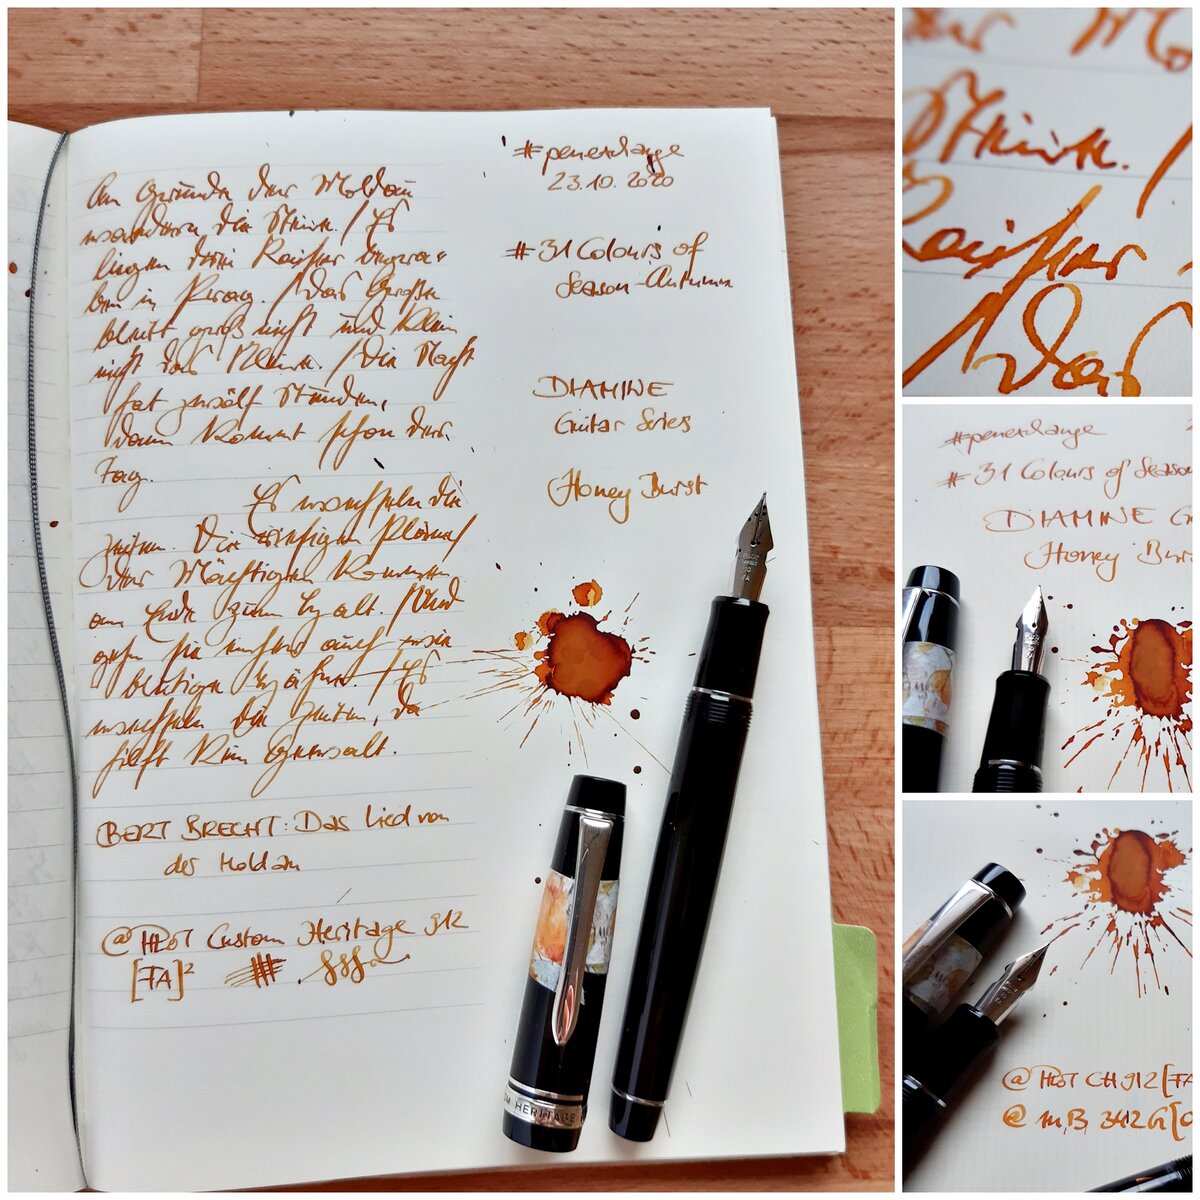 Am Grunde der Moldau
wandern die Steine. / Es
liegen drei Kaiser begra=
ben in Prag. / Das Große
bleibt groß nicht und klein
nicht das Kleine. / Die Nacht
hat zwölf Stunden,
dann kommt schon der
Tag.
Es wechseln die
Zeiten. Die riesigen Pläne /
der Mächtigen kommen
am Ende zum Halt. / Und
gehn sie einher auch wie
blutige Hähne. / Es
wechseln die Zeiten, da
hilft kein Gewalt.
BERT BRECHT: Das Lied von
der Moldau
@ PILOT Custom Heritage 912
[FA]²
#penexchange
23.10.2020
#31 Colours of
Season-Autumn
DIAMINE
Guitar Series
Honey Burst
PILOT
FA
OM HERITAGE
Steine. /
Kaiser
/ Das
#penexchange
#31 Colours of Season
DIAMINE G
Honey Bur
@ PILOT CH 912 [FA
@ MB 342 G [O